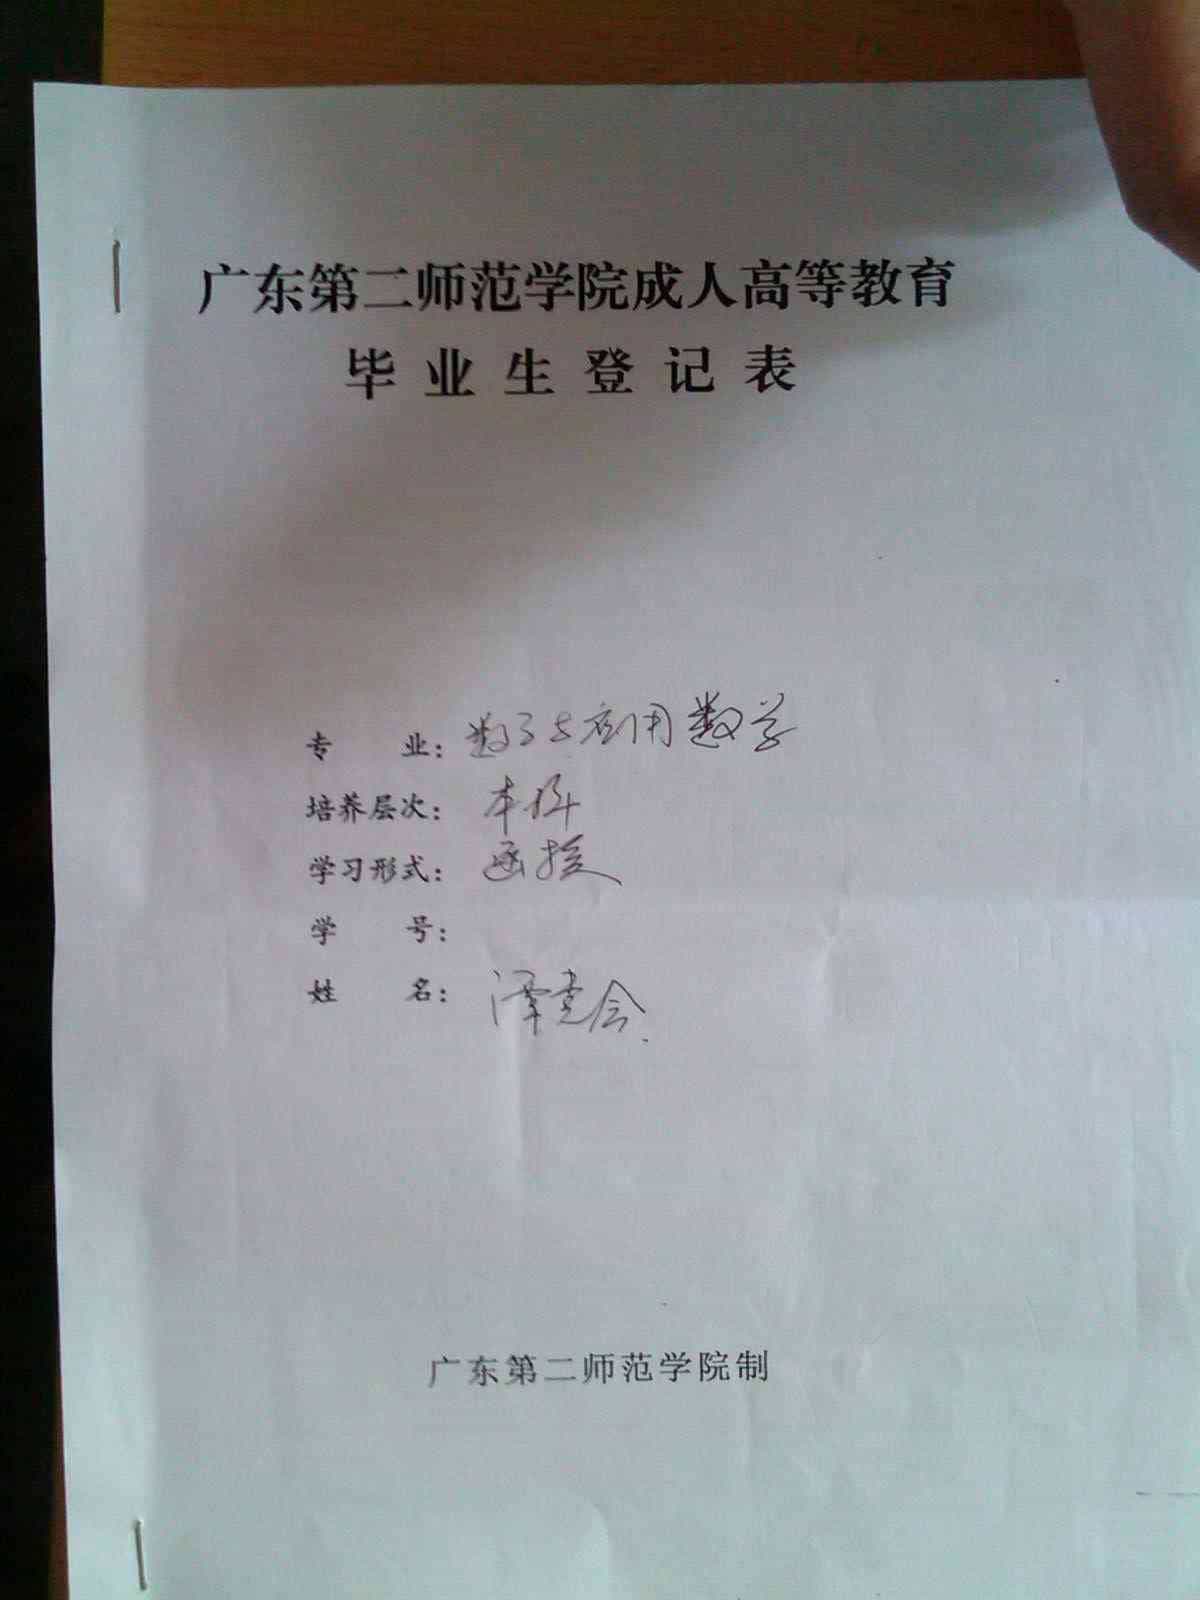 广东第二师范学院成人高等教育
毕业生登记表
专 业：数学与应用数学
培养层次：本科
学习形式：函授
学 号：
姓 名：谭会
广东第二师范学院制